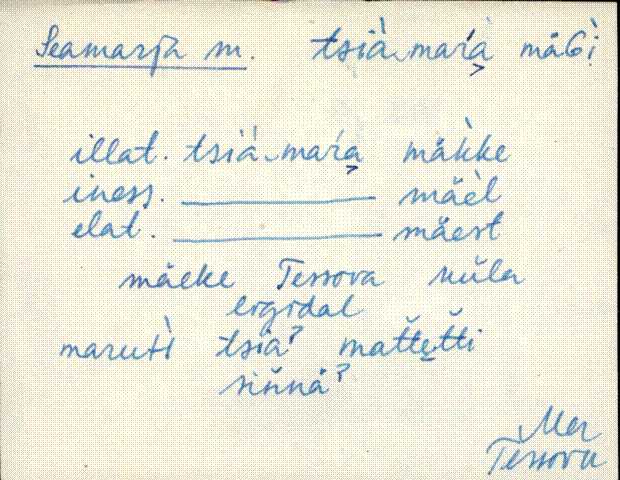 Seamarja m. tsiä͜ maŕa̬ mäGì
illat. tsiä͜ maŕa̬ mäkke
iness. ——— mäèl
elat. ——— mäest
mäeke Tessova küla
ligidal
marutì tsia? mattetti
sińnä?
Mer
Tessova